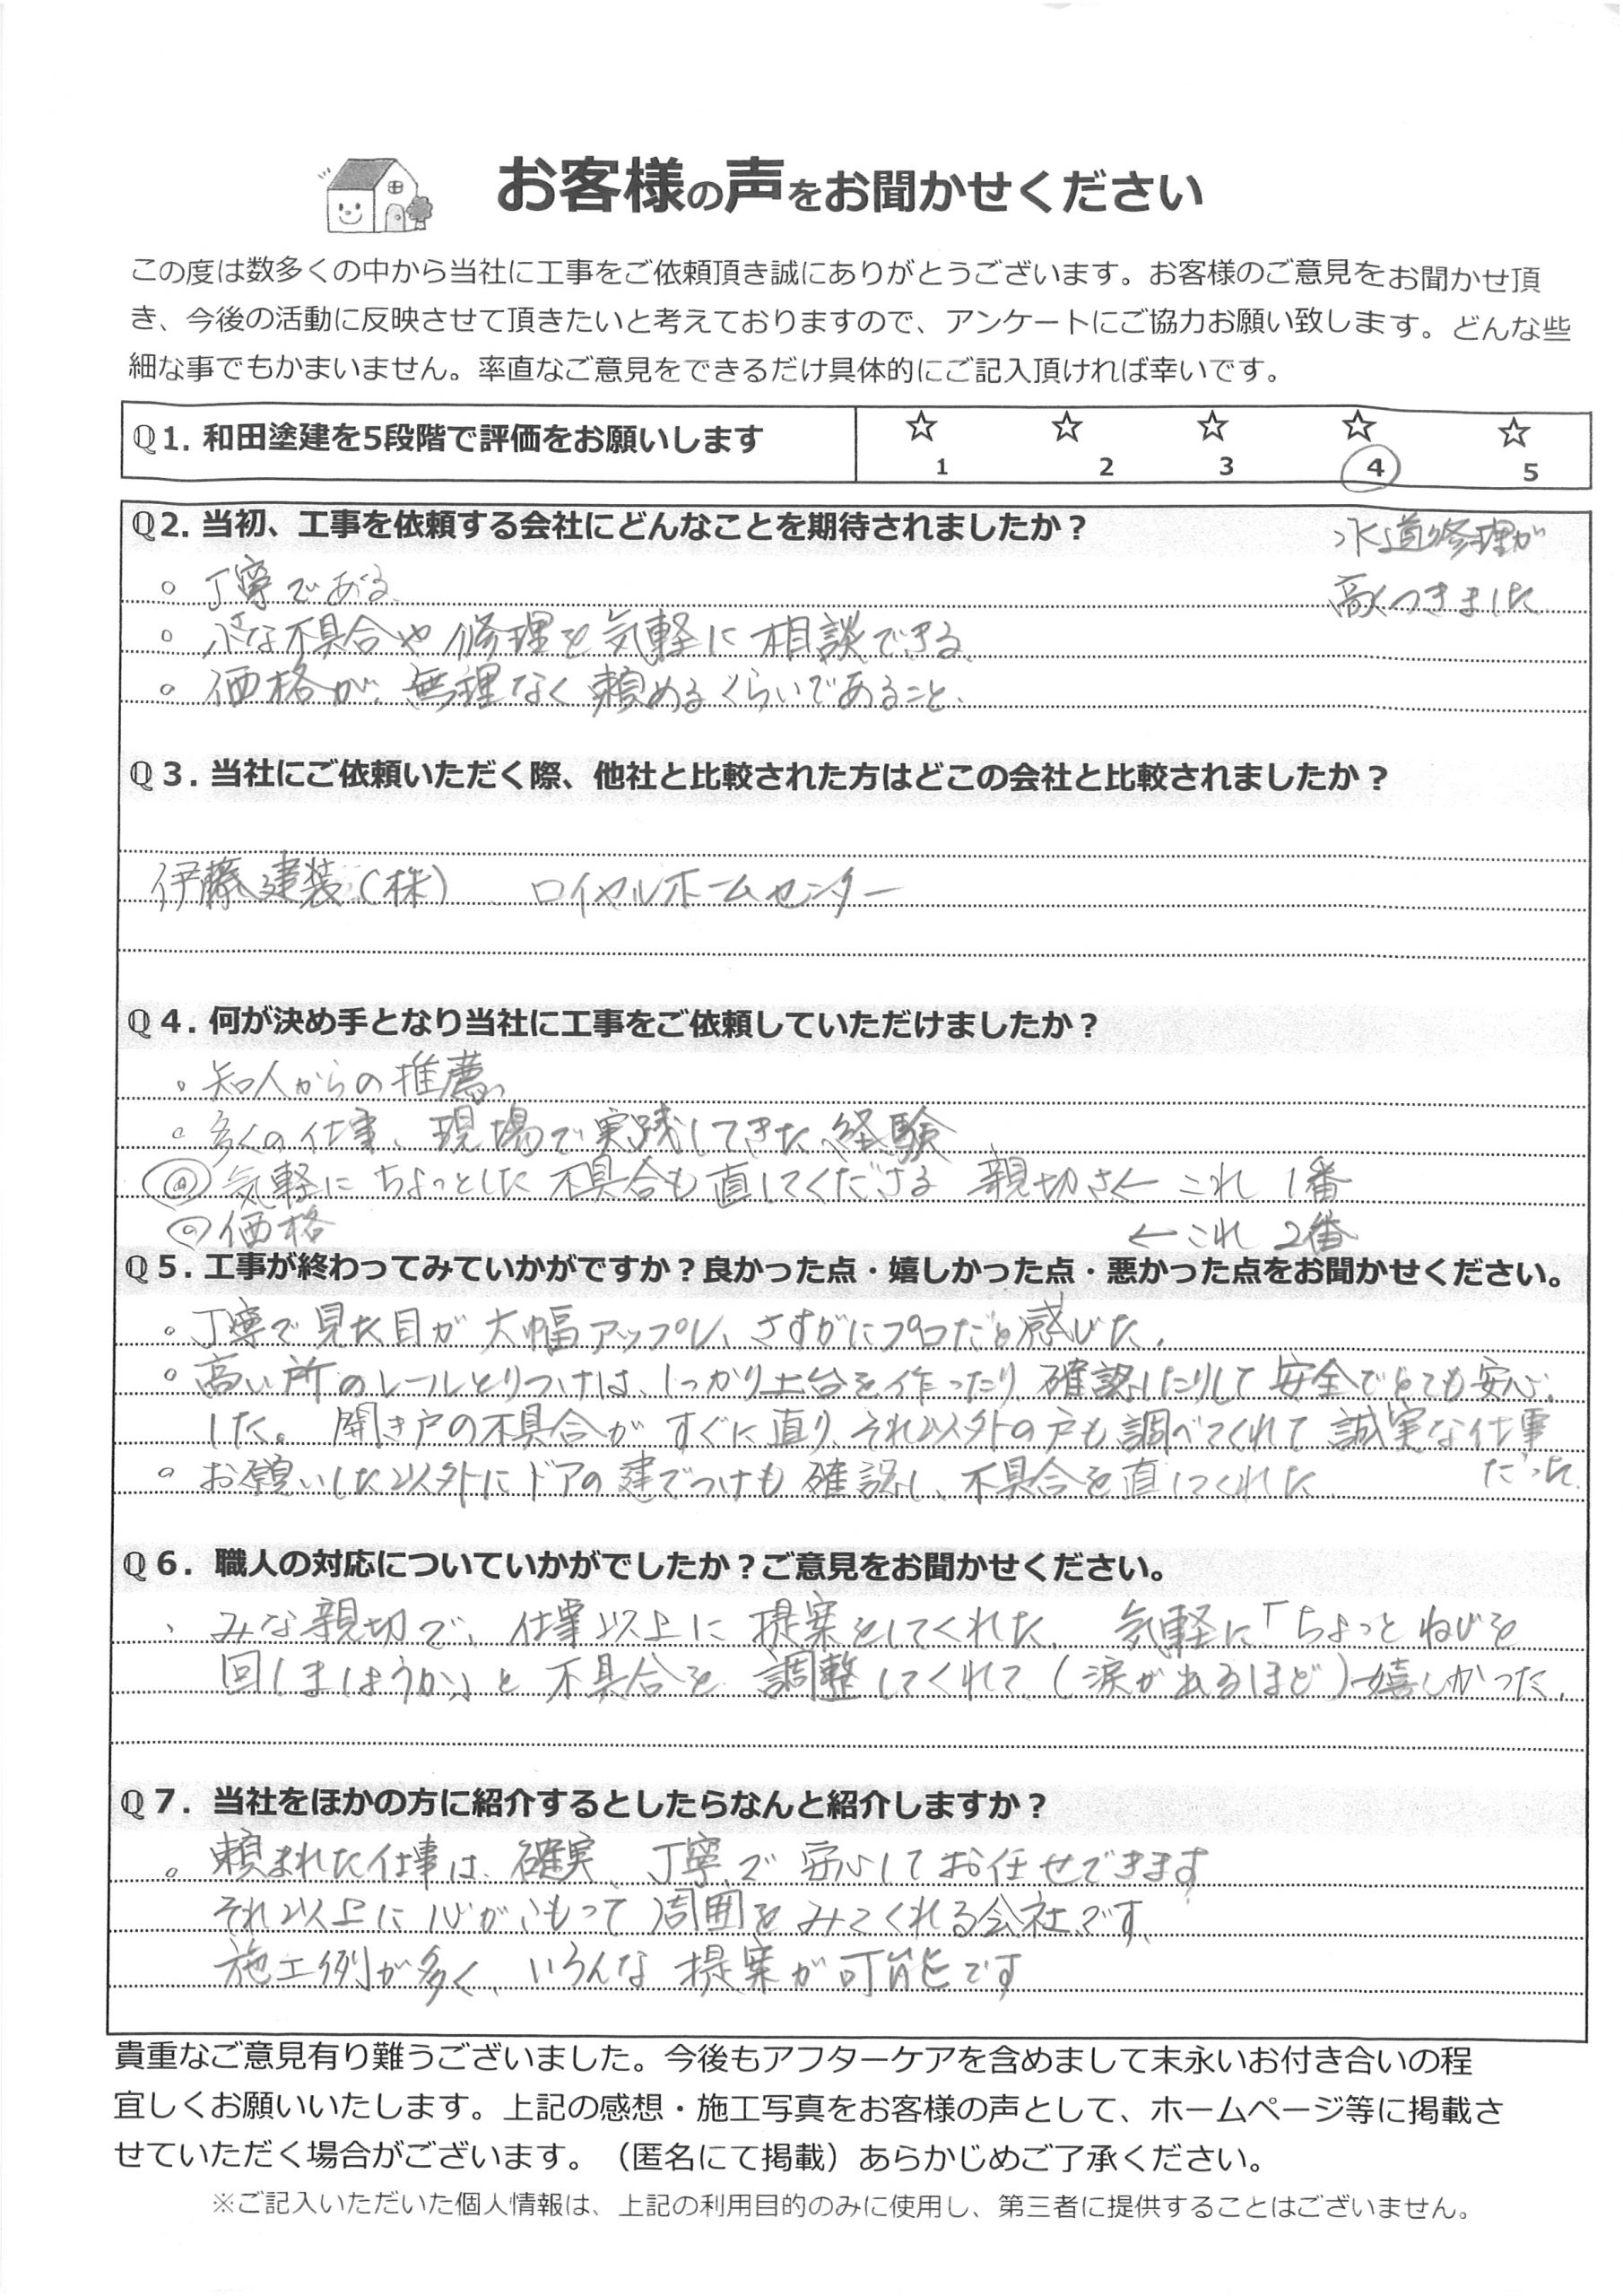 お客様の声をお聞かせください
この度は数多くの中から当社に工事をご依頼頂き誠にありがとうございます。お客様のご意見をお聞かせ頂
き、今後の活動に反映させて頂きたいと考えておりますので、アンケートにご協力お願い致します。どんな些
細な事でもかまいません。率直なご意見をできるだけ具体的にご記入頂ければ幸いです。
Q1. 和田塗建を5段階で評価をお願いします
☆ ☆ ☆ ☆ ☆
1 2 3 4 5
Q2. 当初、工事を依頼する会社にどんなことを期待されましたか？
水道修理が
高くつきました
。丁寧である
。小さな不具合や修理を気軽に相談できる
。価格が、無理なく頼めるくらいであること、
Q３. 当社にご依頼いただく際、他社と比較された方はどこの会社と比較されましたか？
伊藤建装（株）、ロイヤルホームセンター
Q４. 何が決め手となり当社に工事をご依頼していただけましたか？
。知人からの推薦
。多くの仕事、現場で実践してきた経験
◎気軽にちょっとした不具合も直してくださる 親切さ← これ 1番
◎価格 ← これ 2番
Q５. 工事が終わってみていかがですか？良かった点・嬉しかった点・悪かった点をお聞かせください。
。丁寧で見た目が大幅アップし、さすがにプロだと感じた。
。高い所のレールとりつけは、しっかり土台を作ったり確認したりして安全でとても安心
した。開き戸の不具合がすぐに直り、それ以外の戸も調べてくれて誠実な仕事
だった
。お願いした以外にドアの建てつけも確認し、不具合を直してくれた
Q６. 職人の対応についていかがでしたか？ご意見をお聞かせください。
、みな親切で、仕事以上に提案をしてくれた。気軽に「ちょっとねじを
回しましょうか」と不具合を調整してくれて（涙が出るほど）嬉しかった。
Q７. 当社をほかの方に紹介するとしたらなんと紹介しますか？
。頼まれた仕事は、確実、丁寧で安心してお任せできます
それ以上に心がこもって周囲をみてくれる会社です。
施工例が多く、いろんな提案が可能です
貴重なご意見有り難うございました。今後もアフターケアを含めまして末永いお付き合いの程
宜しくお願いいたします。上記の感想・施工写真をお客様の声として、ホームページ等に掲載さ
せていただく場合がございます。（匿名にて掲載）あらかじめご了承ください。
※ご記入いただいた個人情報は、上記の利用目的のみに使用し、第三者に提供することはございません。